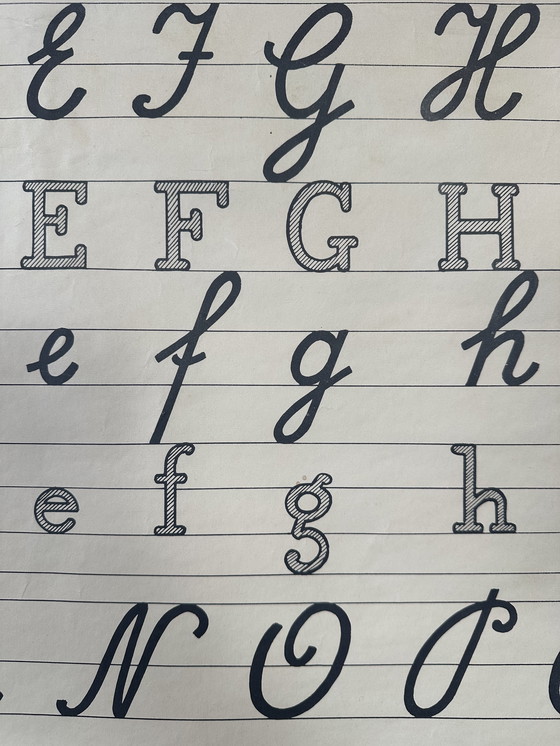 E F G H
E F G H
e f g h
e f g h
N O P